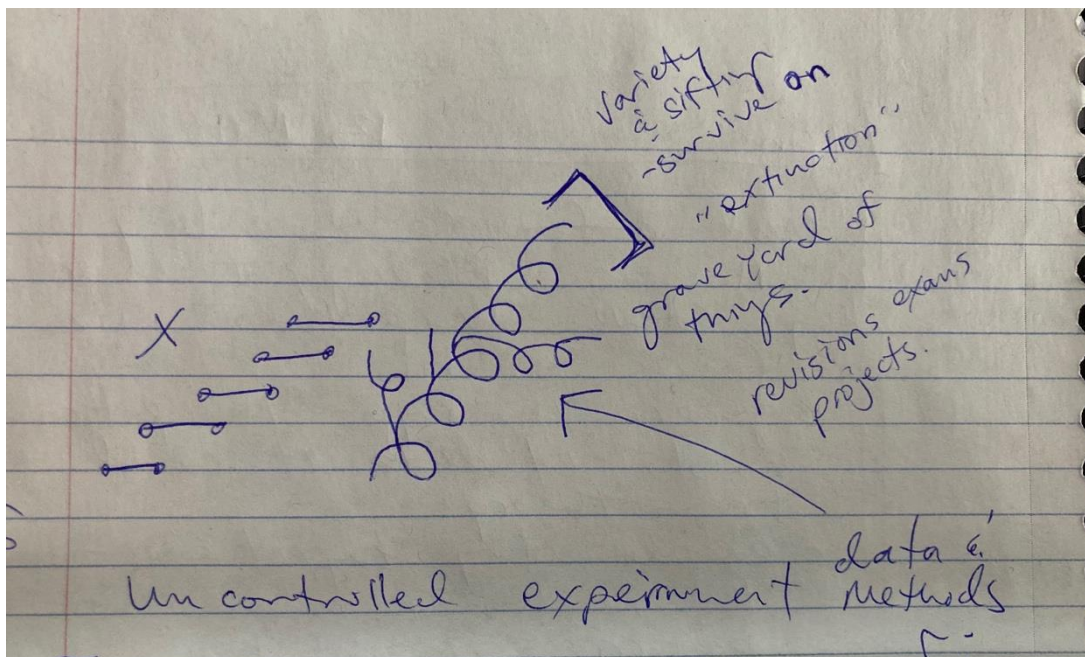 variety
& sifting
-survive on
"extinction"
grave yard of
things.
revisions exams
projects.
X
data &
Uncontrolled experiment Methods